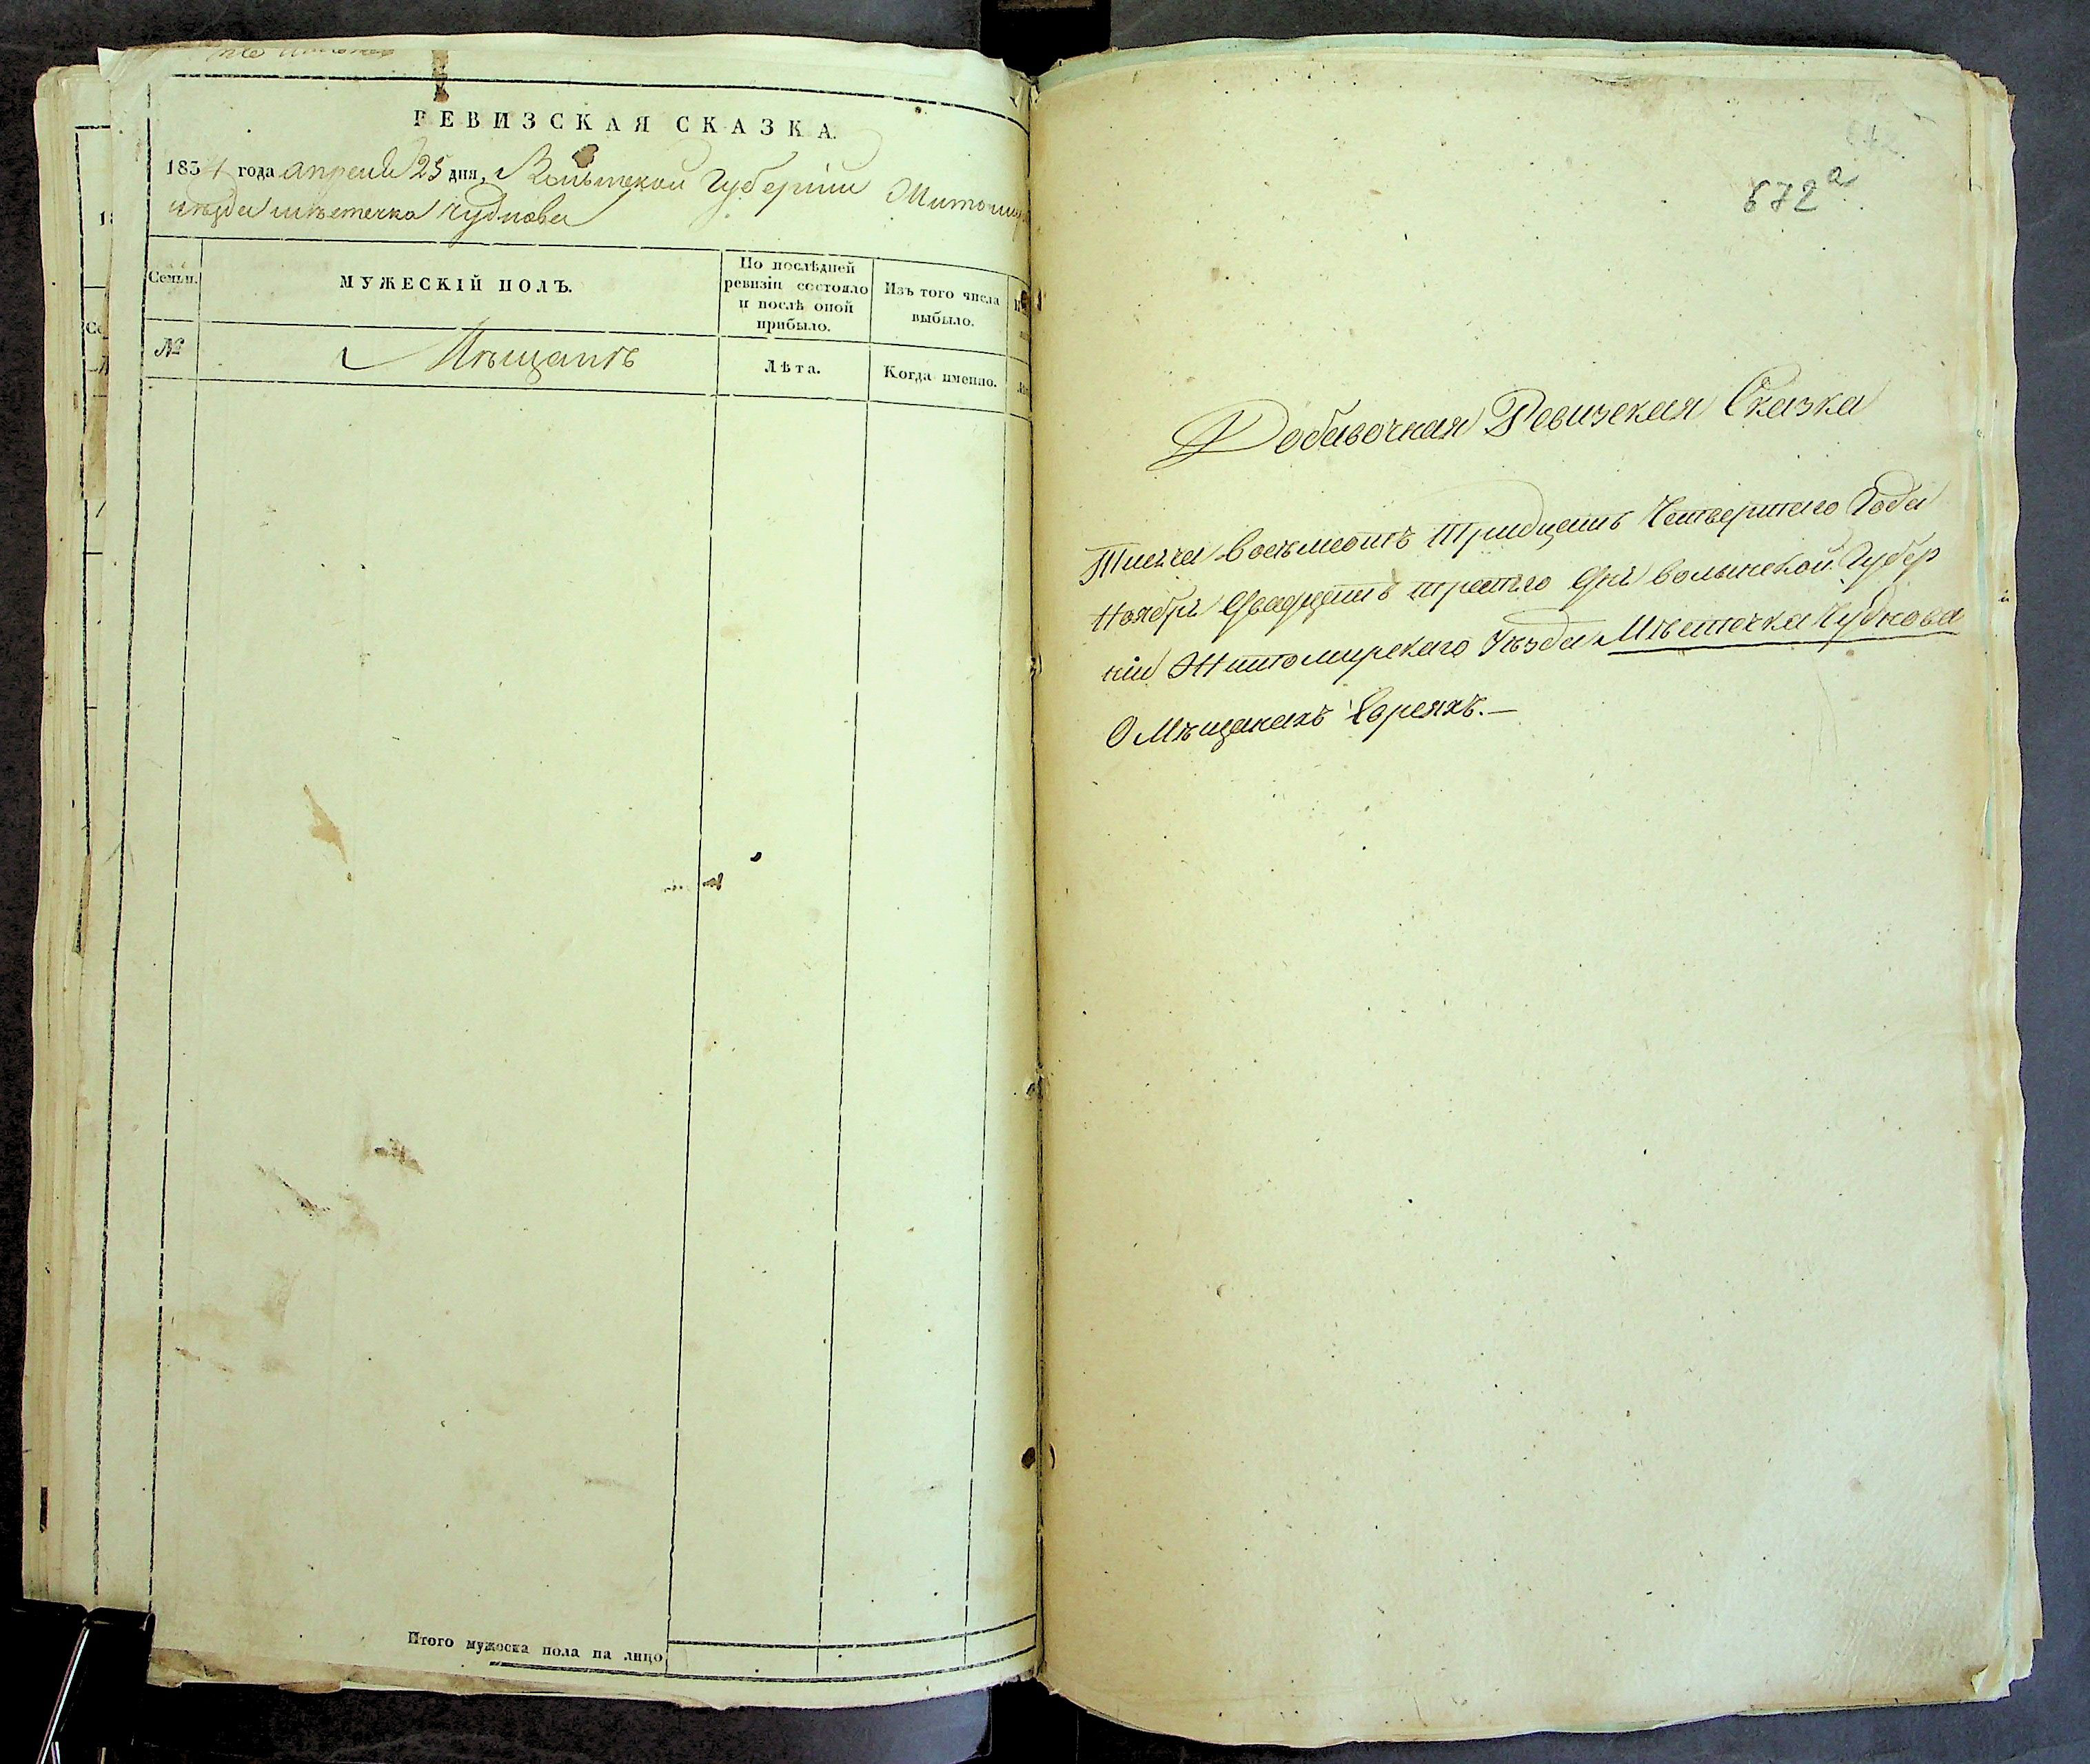 РЕВИЗСКАЯ СКАЗКА.
1834 года апреля 25 дня, Волынской Губерніи Житомир
уѣзда мѣстечка Чуднова
Семьи.
МУЖЕСКІЙ ПОЛЪ.
По послѣдней
ревизіи состояло
и послѣ оной
прибыло.
Изъ того числа
выбыло.
№
Мѣщанъ
Лѣта.
Когда именно.
Итого мужеска пола на лицо
672а
Добавочная Ревизская Сказка
Тысяча восемьсотъ тридцать Четвертаго Года
Ноября двадцать третьго дня волынской Губер
ніи Житомирскаго Уѣзда Мѣстечка Чуднова
О Мѣщанахъ Евреяхъ.—